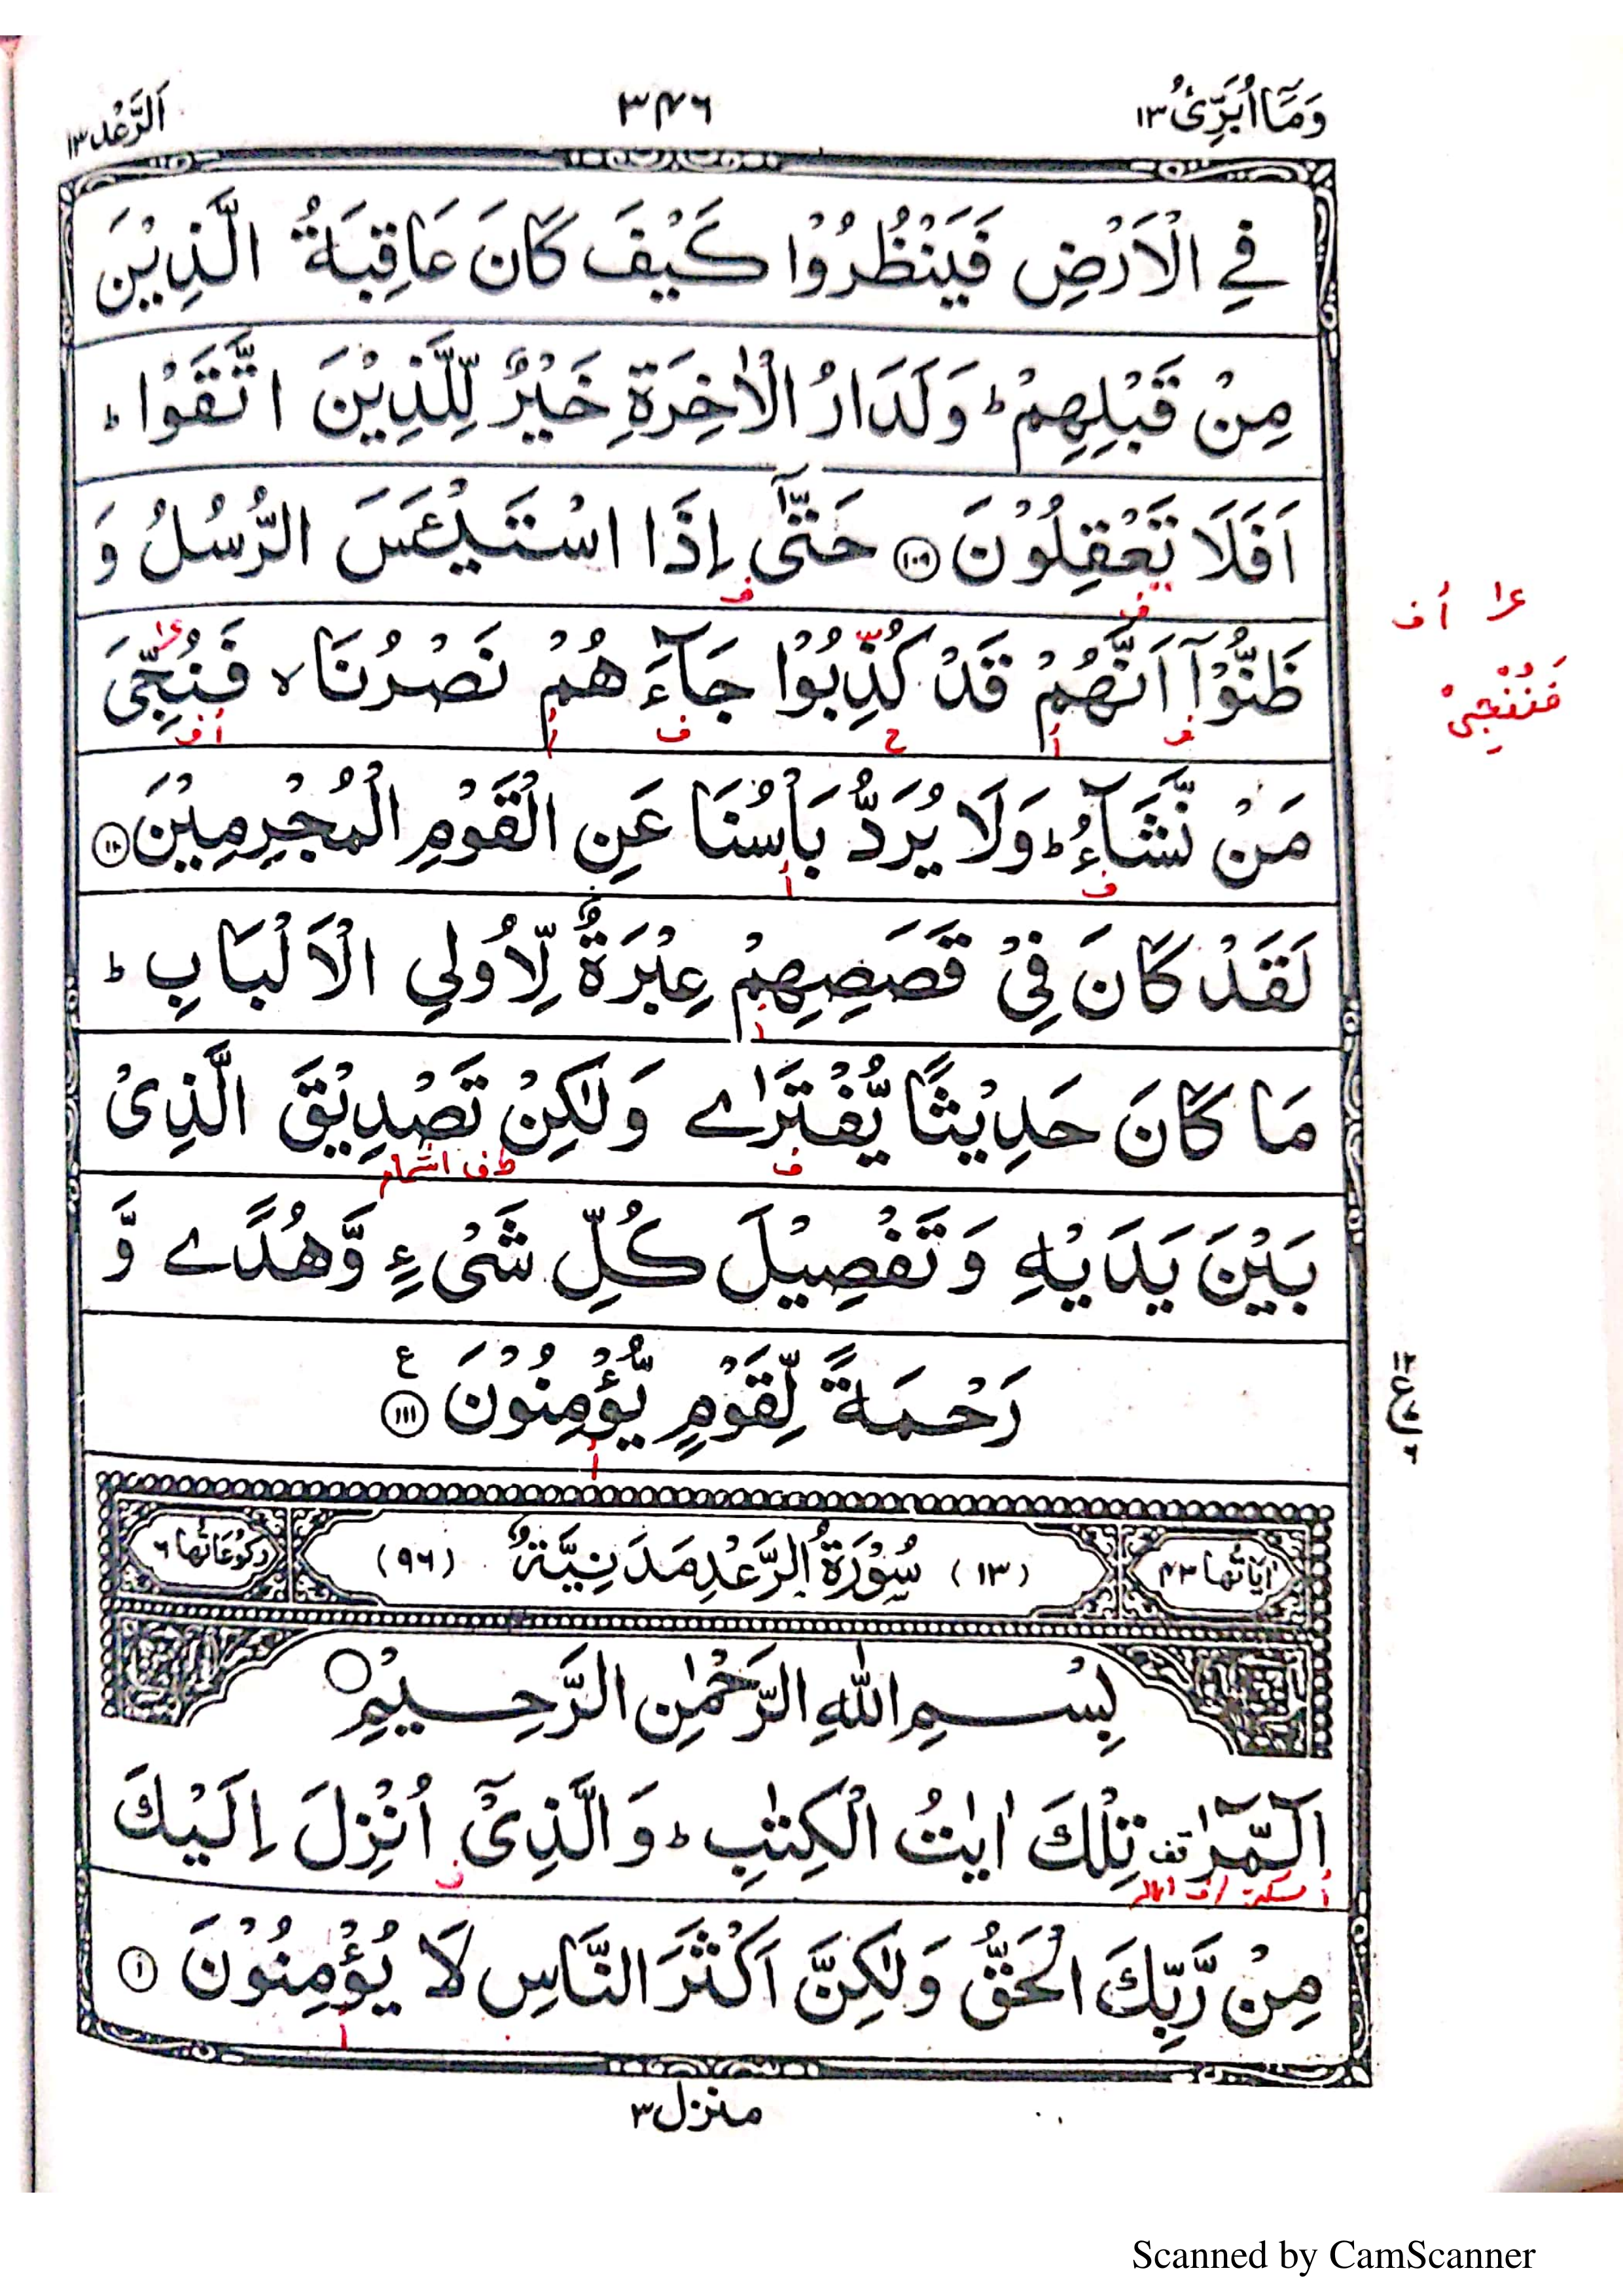 وَمَآ اُبَرِّئُ ١٣
٣٤٦
اَلرَّعْد ١٣
فِي الْاَرْضِ فَيَنْظُرُوْا كَيْفَ كَانَ عَاقِبَةُ الَّذِيْنَ
مِنْ قَبْلِهِمْ ؕ وَلَدَارُ الْاٰخِرَةِ خَيْرٌ لِّلَّذِيْنَ اتَّقَوْا ؕ
اَفَلَا تَعْقِلُوْنَ ١٠٩ حَتّٰٓى اِذَا اسْتَيْـَٔسَ الرُّسُلُ وَ
ف ف
ظَنُّوْٓا اَنَّهُمْ قَدْ كُذِّبُوْا جَآءَهُمْ نَصْرُنَا ۙ فَنُجِّيَ
ف أ ح ف أ أ ف
أ ف
فَنُنْجِیْ
مَنْ نَّشَآءُ ؕ وَلَا يُرَدُّ بَاْسُنَا عَنِ الْقَوْمِ الْمُجْرِمِيْنَ ١١٠
ف أ
لَقَدْ كَانَ فِيْ قَصَصِهِمْ عِبْرَةٌ لِّاُولِي الْاَلْبَابِ ؕ
أ
مَا كَانَ حَدِيْثًا يُّفْتَرٰى وَلٰكِنْ تَصْدِيْقَ الَّذِيْ
ف ط ف اشمام
بَيْنَ يَدَيْهِ وَتَفْصِيْلَ كُلِّ شَيْءٍ وَّهُدًى وَّ
رَحْمَةً لِّقَوْمٍ يُّؤْمِنُوْنَ ١١١ ع
أ
اٰيَاتُهَا ٤٣
(١٣) سُوْرَةُ الرَّعْدِ مَدَنِيَّةٌ (٩٦)
رُكُوْعَاتُهَا ٦
بِسْمِ اللّٰهِ الرَّحْمٰنِ الرَّحِيْمِ
الٓمّٓرٰ قف تِلْكَ اٰيٰتُ الْكِتٰبِ ؕ وَالَّذِيْٓ اُنْزِلَ اِلَيْكَ
أ سكتہ / ف امالہ ف
مِنْ رَّبِّكَ الْحَقُّ وَلٰكِنَّ اَكْثَرَ النَّاسِ لَا يُؤْمِنُوْنَ ١
أ
منزل ٣
Scanned by CamScanner